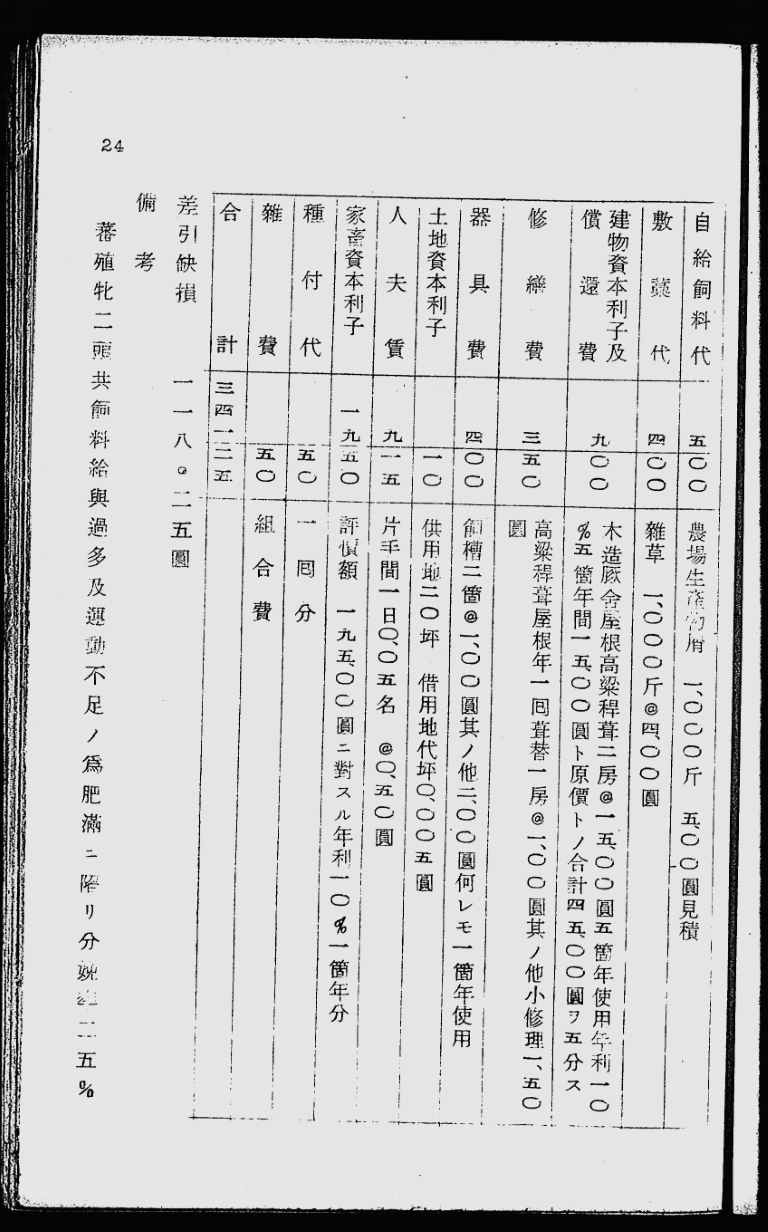 24
自給飼料代 五〇〇 農場生産物屑 一、〇〇〇斤 五、〇〇圓見積
敷藁代 四〇〇 雜草 一、〇〇〇斤@四、〇〇圓
建物資本利子及
償還費 九〇〇 木造豚舍屋根高粱稈葺二房@一五、〇〇圓五箇年使用年利一〇
%五箇年間一五、〇〇圓ト原價トノ合計四五、〇〇圓ヲ五分ス
修繕費 三五〇 高粱稈葺屋根年一囘葺替一房@一、〇〇圓其ノ他小修理一、五〇
圓
器具費 四〇〇 飼槽二箇@一、〇〇圓其ノ他二、〇〇圓何レモ一箇年使用
土地資本利子 一〇 供用地二〇坪 借用地代坪〇、〇〇五圓
人夫賃 九一五 片手間一日〇、〇五名 @〇、五〇圓
家畜資本利子 一九五〇 評價額 一九五、〇〇圓ニ對スル年利一〇%一箇年分
種付代 五〇 一囘分
雜費 五〇 組合費
合計 三四一二五
差引缺損 一一八。二五圓
備考
蕃殖牝二頭共飼料給與過多及運動不足ノ爲肥滿ニ陷リ分娩 五%